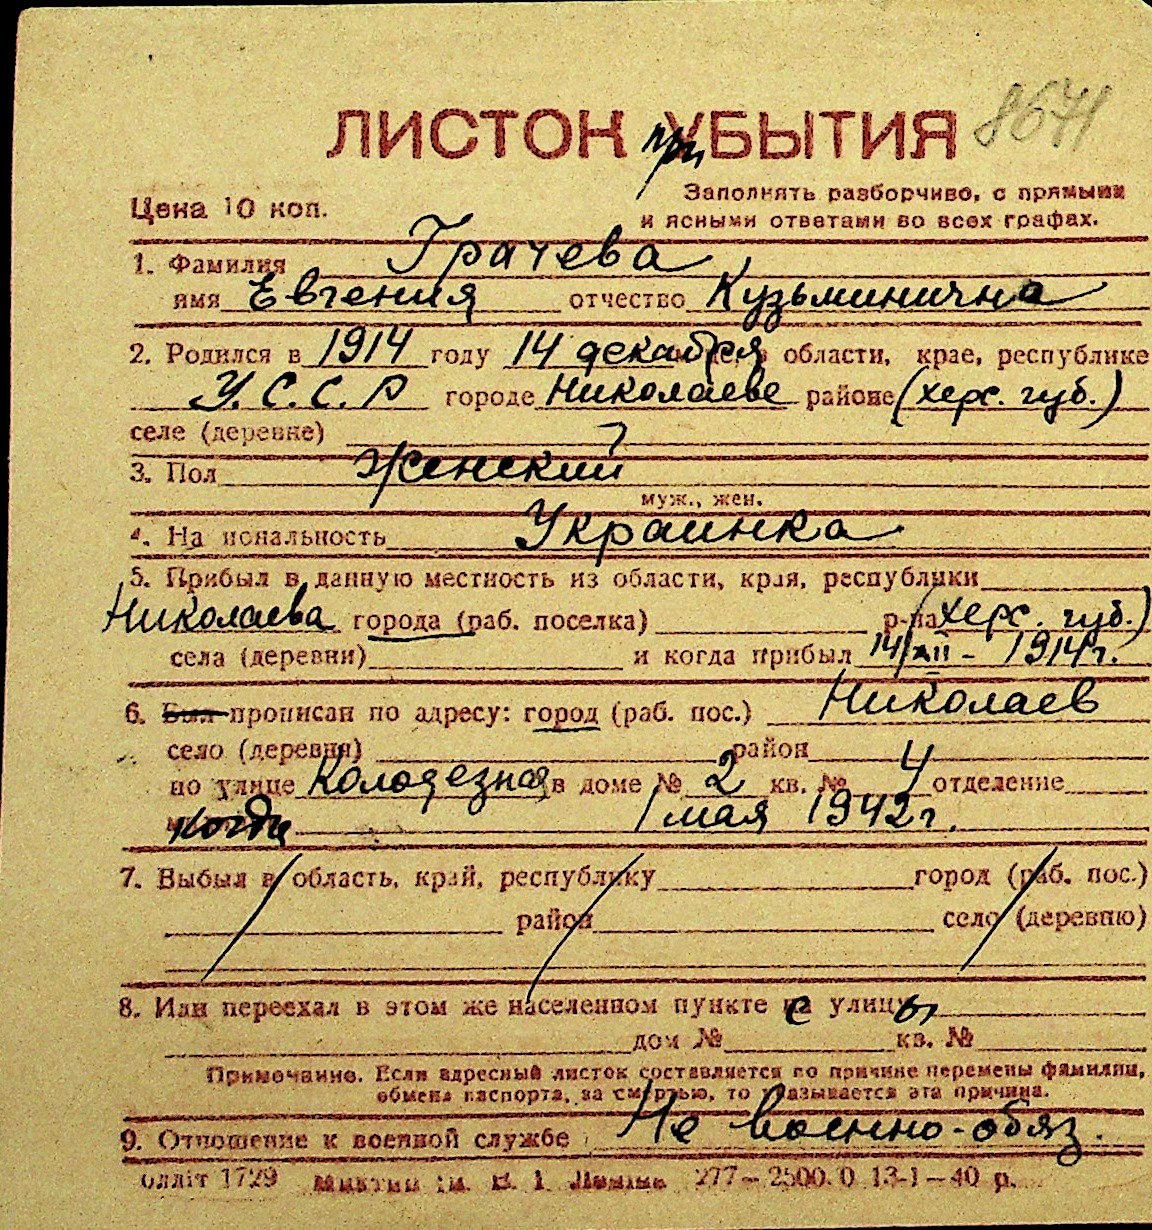 ЛИСТОК при УБЫТИЯ 8671
Цена 10 коп.
Заполнять разборчиво, с прямыми
и ясными ответами во всех графах.
1. Фамилия Грачева
имя Евгения отчество Кузьминична
2. Родился в 1914 году 14 декабря области, крае, республике
У.С.С.Р городе Николаеве районе (херс. губ.)
селе (деревне)
3. Пол Женский
муж., жен.
4. На иональность Украинка
5. Прибыл в данную местность из области, края, республики
Николаева города (раб. поселка) р-на (херс. губ.)
села (деревни) и когда прибыл 14/XII - 1914 г.
6. Был прописан по адресу: город (раб. пос.) Николаев
село (деревня) район
по улице Колодезная в доме № 2 кв. № 4 отделение
когда 1 мая 1942 г.
7. Выбыл в область, край, республику город (раб. пос.)
район село (деревню)
8. Или переехал в этом же населенном пункте с улицы
дом № кв. №
Примечание. Если адресный листок составляется по причине перемены фамилии,
обмена паспорта, за смертью, то указывается эта причина.
9. Отношение к военной службе Не военно-обяз.
1729 277 – 2500.0 13-1 – 40 р.